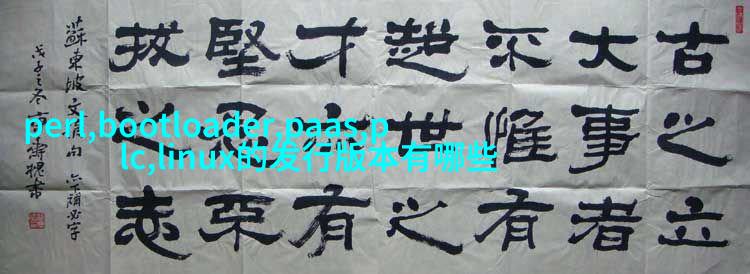 古之立
大事者
不惟有
超世之
才亦有
堅忍不
拔之志
蘇東坡文
戊子之冬
perl,bootloader,paas,p
lc,linux的发行版本有哪些